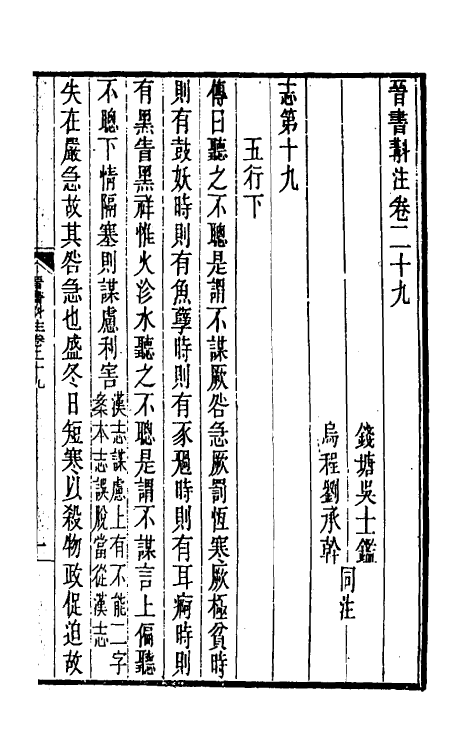 晉書斠注卷二十九
錢塘吳士鑑
烏程劉承幹
同注
志第十九
五行下
傳曰聽之不聰是謂不謀厥咎急厥罰恆寒厥極貧時
則有鼓妖時則有魚孽時則有豕禍時則有耳痾時則
有黑眚黑祥惟火沴水聽之不聰是謂不謀言上偏聽
不聰下情隔塞則謀慮利害漢志謀慮上有不能二字
案本志誤脫當從漢志
失在嚴急故其咎急也盛冬日短寒以殺物政促迫故
晉書斠注卷二十九
一